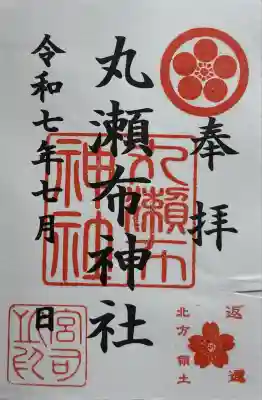 奉拝
丸瀬布神社
令和七年七月 日
丸瀬布
神社
返還
北方領土
宮司
之印